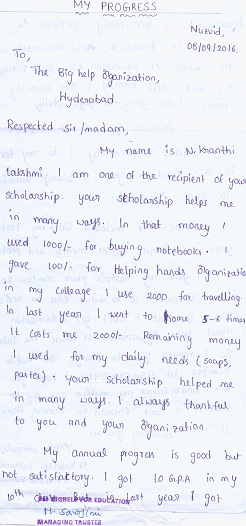 MY PROGRESS
Nuzvid,
08/09/2016.
To,
The Big help Organization,
Hyderabad.
Respected sir/madam,
My name is N. kranthi
lakshmi. I am one of the recipient of your
scholarship. your scholarship helps me
in many ways. In that money I
used 1000/- for buying notebooks. I
gave 100/- for Helping hands Organization
in my colleage. I use 2000 for travelling.
In last year I went to home 5-6 times
It costs me 2000/- Remaining money
I used for my daily needs (soaps,
paster). your scholarship helped me
in many ways. I always thankful
to you and your Organization.
My annual progress is good but
not satisfactory. I got 10 G.P.A in my
10th last year I got
EDUCATION
M. Sarojini
MANAGING TRUSTEE